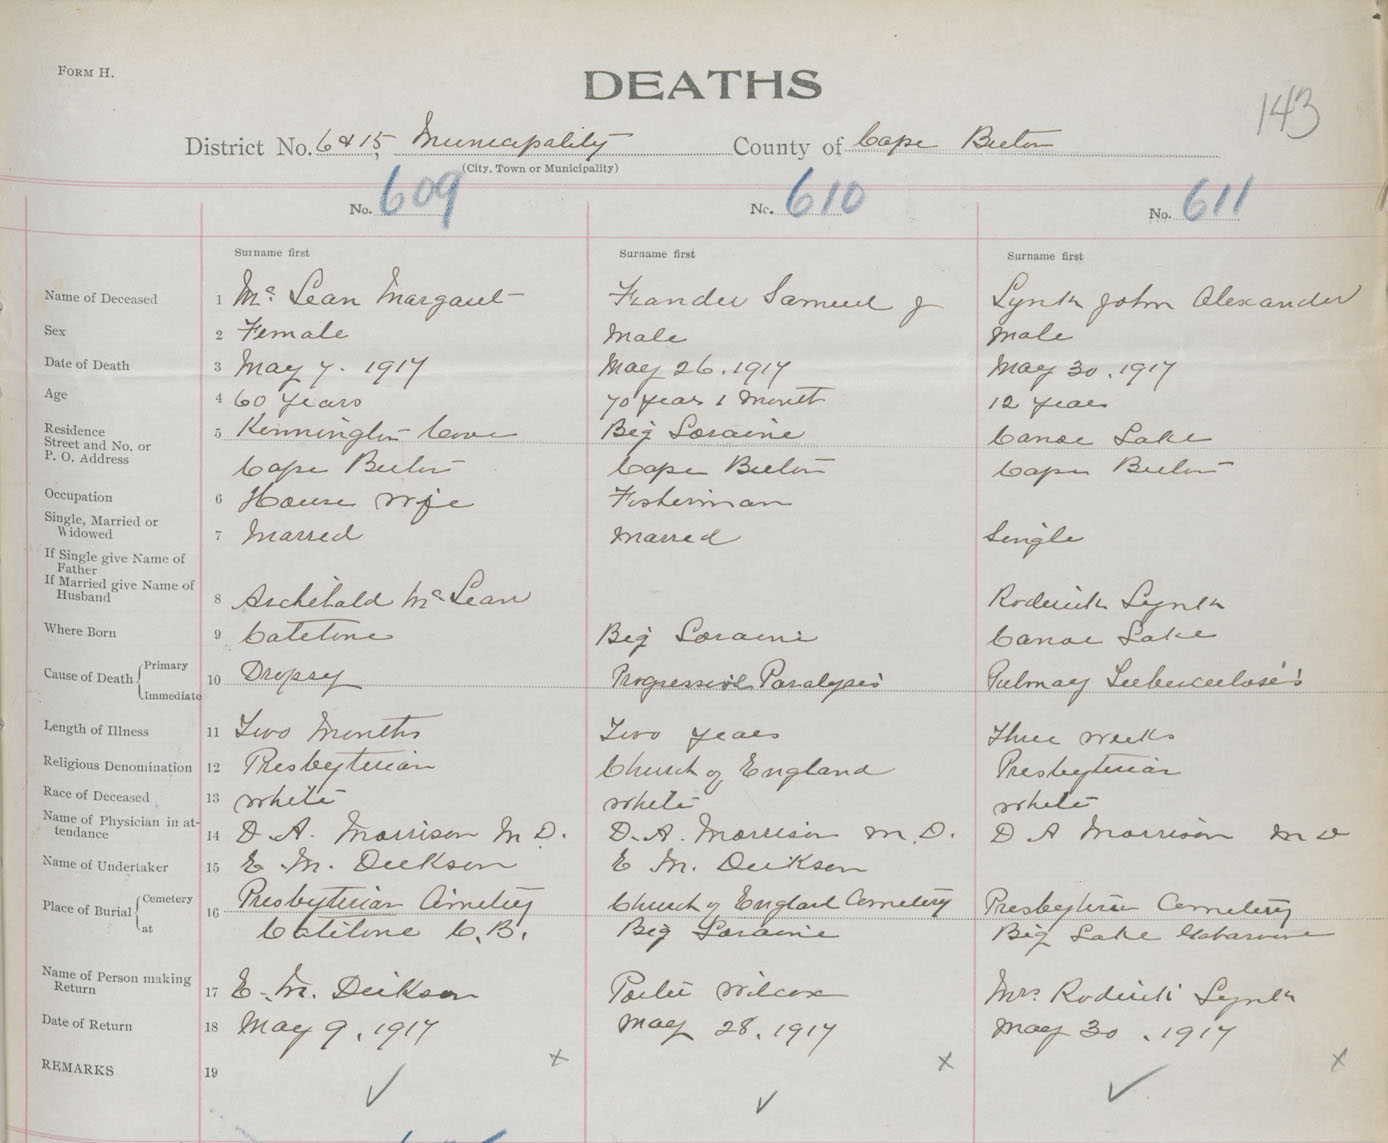 FORM H.
DEATHS
143
District No. 6 & 15, Municipality County of Cape Breton
(City, Town or Municipality)
No. 609 No. 610 No. 611
Surname first Surname first Surname first
Name of Deceased 1 Mc Lean Margaret Samuel J Lynk John Alexander
Sex 2 Female Male Male
Date of Death 3 May 7. 1917 May 26. 1917 May 30. 1917
Age 4 60 years 70 years 1 Month 12 years
Residence
Street and No. or
P. O. Address 5 Kennington Cove Big Loraine Canoe Lake
Cape Breton Cape Breton Cape Breton
Occupation 6 House Wife Fisherman
Single, Married or
Widowed 7 Marred Marred Single
If Single give Name of
Father
If Married give Name of
Husband 8 Archibald Mc Lean Roderick Lynk
Where Born 9 Catelone Big Loraine Canoe Lake
Cause of Death { Primary
Immediate 10 Dropsy Progressive Paralysis Pulmay Tuberculosis
Length of Illness 11 Two Months Two years Three weeks
Religious Denomination 12 Presbyterian Church of England Presbyterian
Race of Deceased 13 White White White
Name of Physician in at-
tendance 14 D. A. Morrison M. D. D. A. Morrison M. D. D A Morrison M D
Name of Undertaker 15 E. M. Dickson E M. Dickson
Place of Burial { Cemetery 16 Presbyterian Cimetery Church of England Cemetery Presbyterian Cemetery
at Catelone C. B. Big Loraine Big Lake
Name of Person making
Return 17 E. M. Dickson Wilcox Mrs. Roderick Lynk
Date of Return 18 May 9, 1917 May 28, 1917 May 30, 1917
REMARKS 19